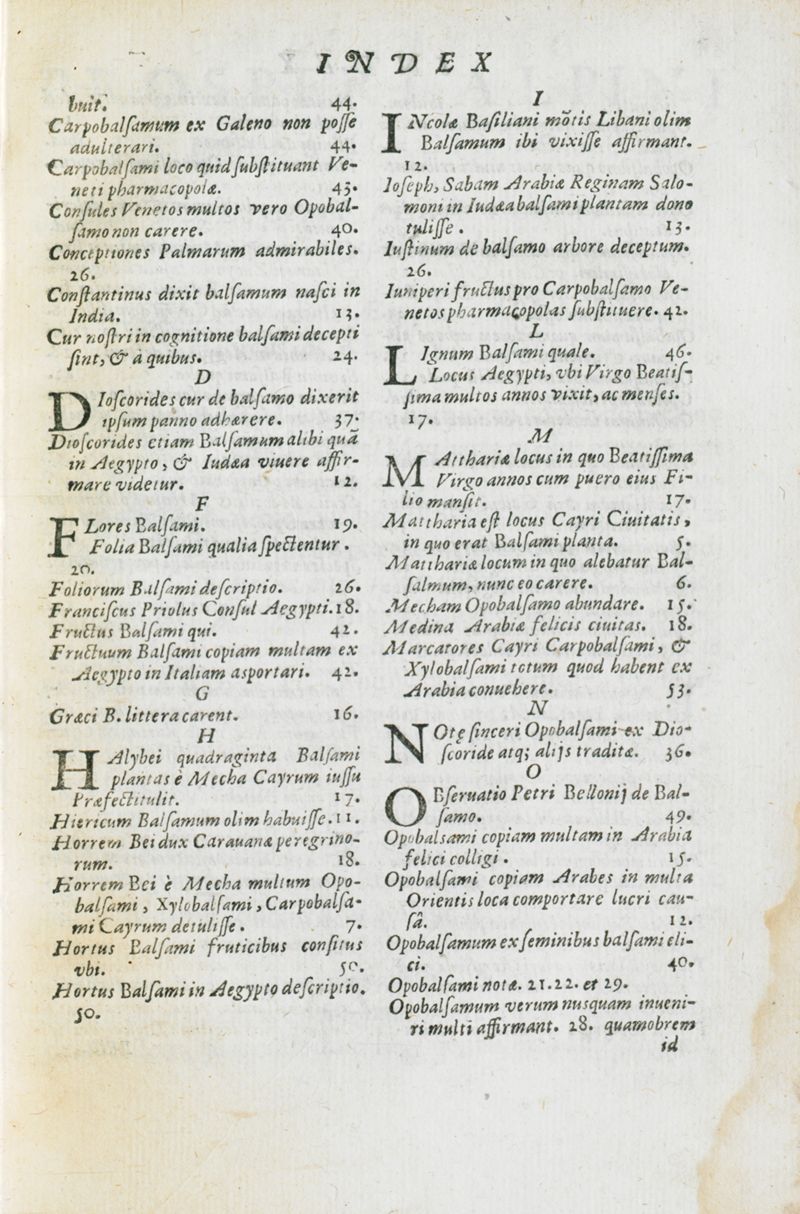 INDEX
buit. 44.
Carpobalſamum ex Galeno non poſſe
adulterari. 44.
Carpobalſami loco quid ſubſtituant Ve-
neti pharmacopolæ. 43.
Conſules Venetos multos vero Opobal-
ſamo non carere. 40.
Conceptiones Palmarum admirabiles.
26.
Conſtantinus dixit balſamum naſci in
India. 13.
Cur noſtri in cognitione balſami decepti
ſint, & à quibus. 24.
D
DIoſcorides cur de balſamo dixerit
ipſum panno adhærere. 37.
Dioſcorides etiam Balſamum alibi quā
in Aegypto, & Iudæa viuere affir-
mare videtur. 12.
F
FLores Balſami. 19.
Folia Balſami qualia ſpectentur.
20.
Foliorum Balſami deſcriptio. 26.
Franciſcus Priolus Conſul Aegypti. 18.
Fructus Balſami qui. 42.
Fructuum Balſami copiam multam ex
Aegypto in Italiam asportari. 42.
G
Græci B. littera carent. 16.
H
HAlybei quadraginta Balſami
plantas è Mecha Cayrum iuſſu
Præfecti tulit. 17.
Hiericum Balſamum olim habuiſſe. 11.
Horrem Bei dux Carauanæ peregrino-
rum. 18.
Horrem Bei è Mecha multum Opo-
balſami, Xylobalſami, Carpobalſa-
mi Cayrum detuliſſe. 7.
Hortus Balſami fruticibus conſitus
vbi. 50.
Hortus Balſami in Aegypto deſcriptio.
50.
I
INcolæ Baſiliani mōtis Libani olim
Balſamum ibi vixiſſe affirmant.
12.
Ioſeph, Sabam Arabiæ Reginam Salo-
moni in Iudæa balſami plantam dono
tuliſſe. 13.
Iuſtinum de balſamo arbore deceptum.
26.
Iuniperi fructus pro Carpobalſamo Ve-
netos pharmacopolas ſubſtituere. 42.
L
LIgnum Balſami quale. 46.
Locus Aegypti, vbi Virgo Beatiſ-
ſima multos annos vixit, ac menſes.
17.
M
MAtthariæ locus in quo Beatiſſima
Virgo annos cum puero eius Fi-
lio manſit. 17.
Mattharia eſt locus Cayri Ciuitatis,
in quo erat Balſami planta. 5.
Matthariæ locum in quo alebatur Bal-
ſalmum, nunc eo carere. 6.
Mecham Opobalſamo abundare. 15.
Medina Arabiæ felicis ciuitas. 18.
Marcatores Cayri Carpobalſami, &
Xylobalſami totum quod habent ex
Arabia conuehere. 53.
N
NOtę ſinceri Opobalſami ex Dio-
ſcoride atq; alijs traditæ. 36.
O
OBſeruatio Petri Bellonij de Bal-
ſamo. 49.
Opobalsami copiam multam in Arabia
felici colligi. 15.
Opobalſami copiam Arabes in multa
Orientis loca comportare lucri cau-
ſâ. 12.
Opobalſamum ex ſeminibus balſami eli-
ci. 40.
Opobalſami notæ. 21.22. et 29.
Opobalſamum verum nusquam inueni-
ri multi affirmant. 28. quamobrem
id